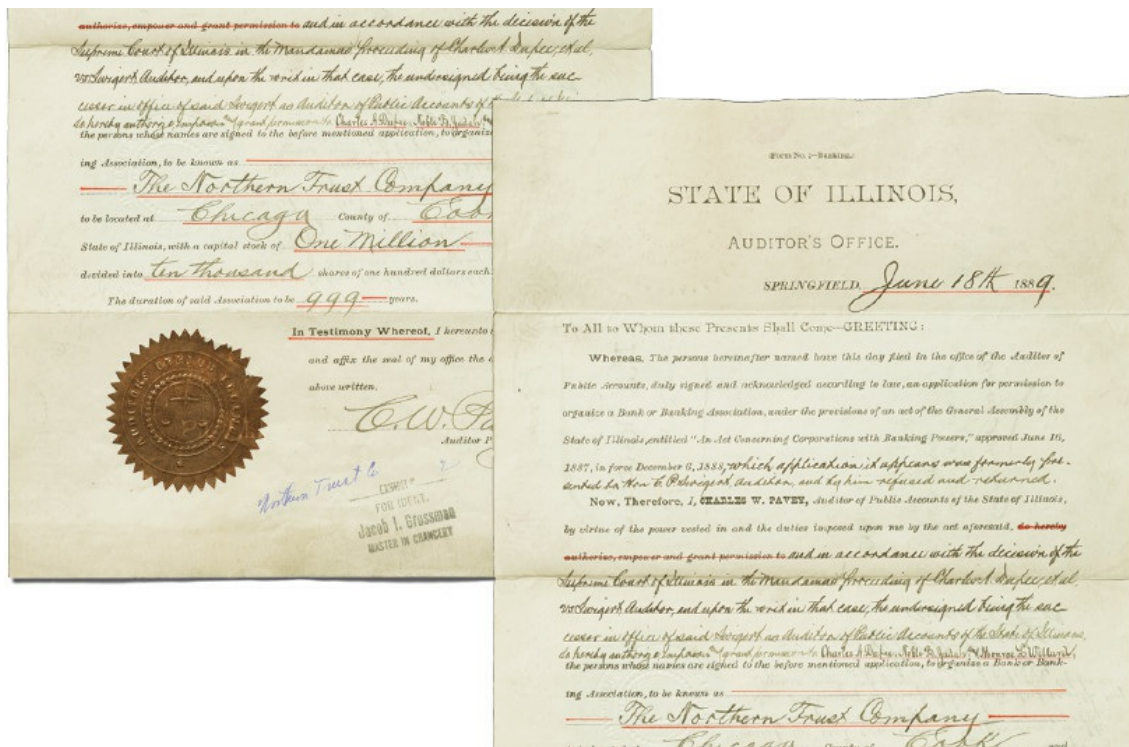 authorize, empower and grant permission to and in accordance with the decision of the
Supreme Court of Illinois in the Mandamus proceeding of Charles A. Dupee, et al.
vs. Swigert, Auditor, and upon the writ in that case, the undersigned being the suc-
cessor in office of said Swigert as Auditor of Public Accounts of
do hereby authorize, empower & grant permission to Charles A. Dupee, Noble B. Judah,
the persons whose names are signed to the before mentioned application, to organize
ing Association, to be known as
The Northern Trust Company
to be located at Chicago County of Coo
State of Illinois, with a capital stock of One Million
divided into ten thousand shares of one hundred dollars each
The duration of said Association to be 999 years.
In Testimony Whereof, I hereunto
and affix the seal of my office the
above written.
C. W. Pa
Auditor P
Northern Trust Co
2
EXHIBIT
FOR IDENT.
Jacob I. Grossman
MASTER IN CHANCERY
(Form No. 2—Banking.)
STATE OF ILLINOIS,
AUDITOR'S OFFICE.
SPRINGFIELD, June 18th 1889.
To All to Whom these Presents Shall Come—GREETING:
Whereas, The persons hereinafter named have this day filed in the office of the Auditor of
Public Accounts, duly signed and acknowledged according to law, an application for permission to
organize a Bank or Banking Association, under the provisions of an act of the General Assembly of the
State of Illinois, entitled "An Act Concerning Corporations with Banking Powers," approved June 16,
1887, in force December 6, 1888, which application it appears was formerly pre-
sented to Hon C. P. Swigert, Auditor, and by him refused and returned.
Now, Therefore, I, CHARLES W. PAVEY, Auditor of Public Accounts of the State of Illinois,
by virtue of the power vested in and the duties imposed upon me by the act aforesaid, do hereby
authorize, empower and grant permission to and in accordance with the decision of the
Supreme Court of Illinois in the Mandamus proceeding of Charles A. Dupee, et al.
vs. Swigert, Auditor, and upon the writ in that case, the undersigned being the suc-
cessor in office of said Swigert as Auditor of Public Accounts of the State of Illinois,
do hereby authorize, empower & grant permission to Charles A. Dupee, Noble B. Judah, & Monroe L. Willard,
the persons whose names are signed to the before mentioned application, to organize a Bank or Bank-
ing Association, to be known as
The Northern Trust Company
Chicago Cook and